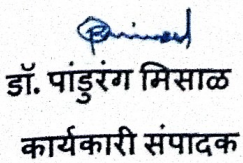 डॉ. पांडुरंग मिसाळ
कार्यकारी संपादक